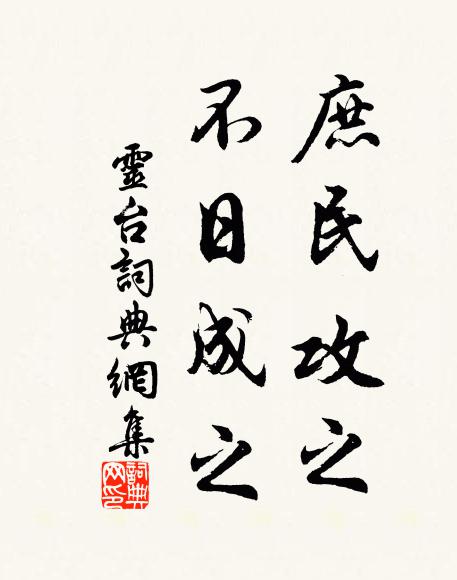 庶民攻之
不日成之
靈台詞典網集
詞典
网印